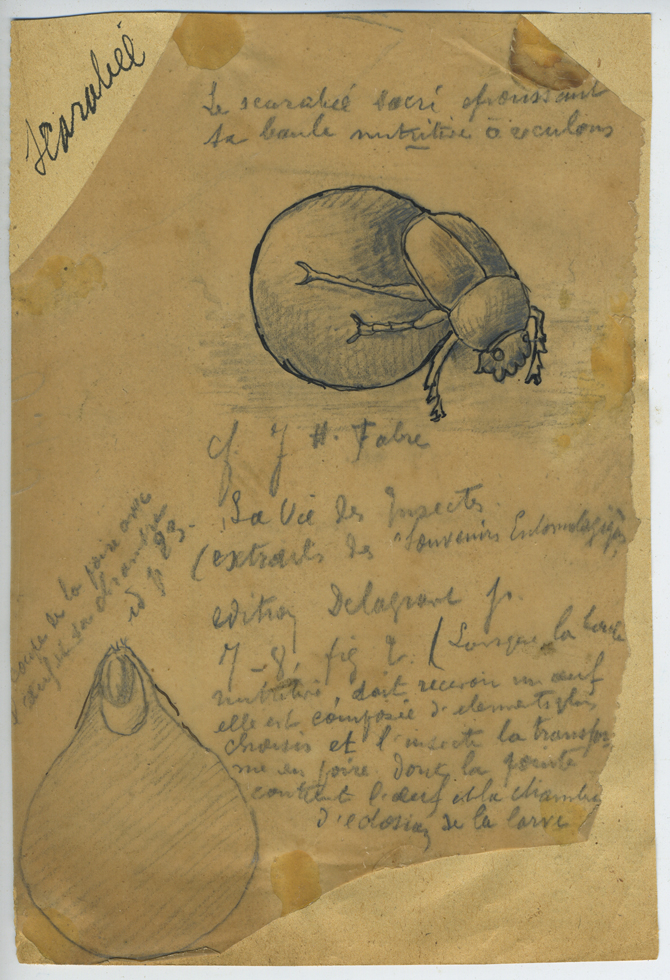 Scarabée
Le scarabée sacré poussant
sa boule nutritive à reculons
cf. J H. Fabre
La Vie des Insectes
(extraits des "Souvenirs Entomologiques
edition Delagrave p.
7-8, fig 2. (Lorsque la boule
nutritive, doit recevoir un œuf
elle est composée d'elements plus
choisis et l'insecte la transfor-
me en poire dont la pointe
contient l'œuf et la chambre
d'eclosion de la larve
de la poire avec
œuf et sa chambre
id p. 23.